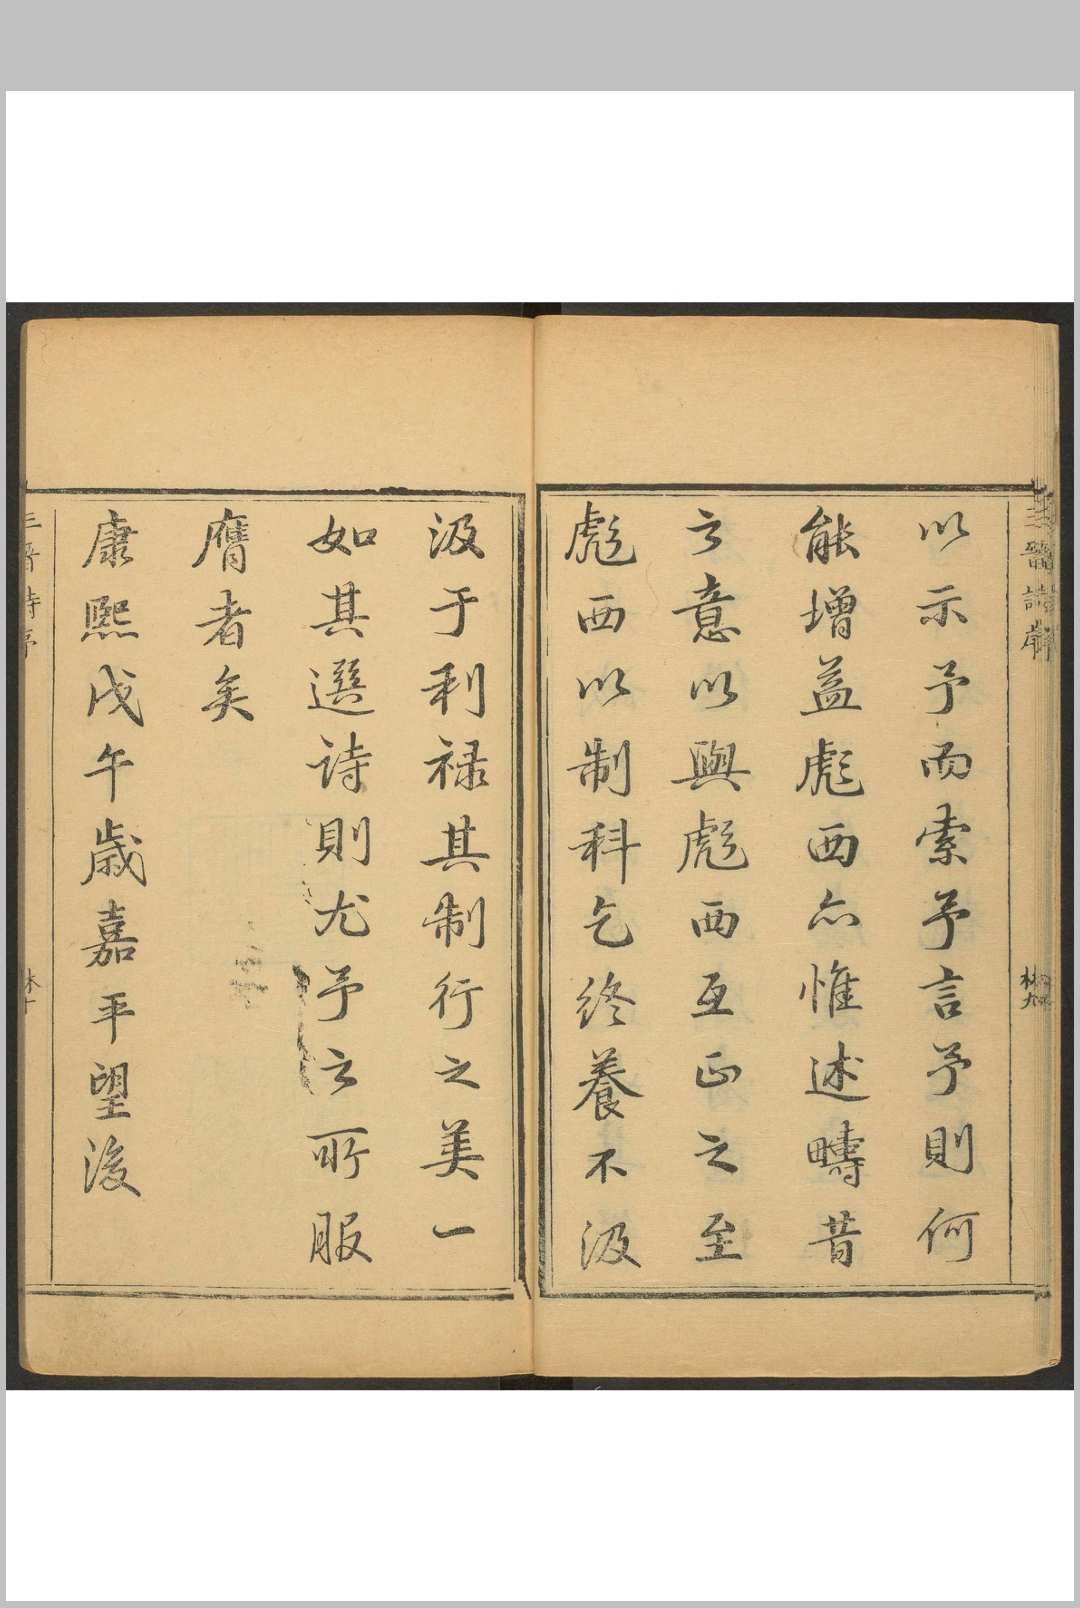 以示予而索予言予則何
能增益彪西亦惟述疇昔
之意以與彪西互正之至
彪西以制科乞終養不汲
汲于利祿其制行之美一
如其選詩則尤予之所服
膺者矣
康熙戊午歲嘉平望後
三晉詩序
林九
三晉詩序
林十